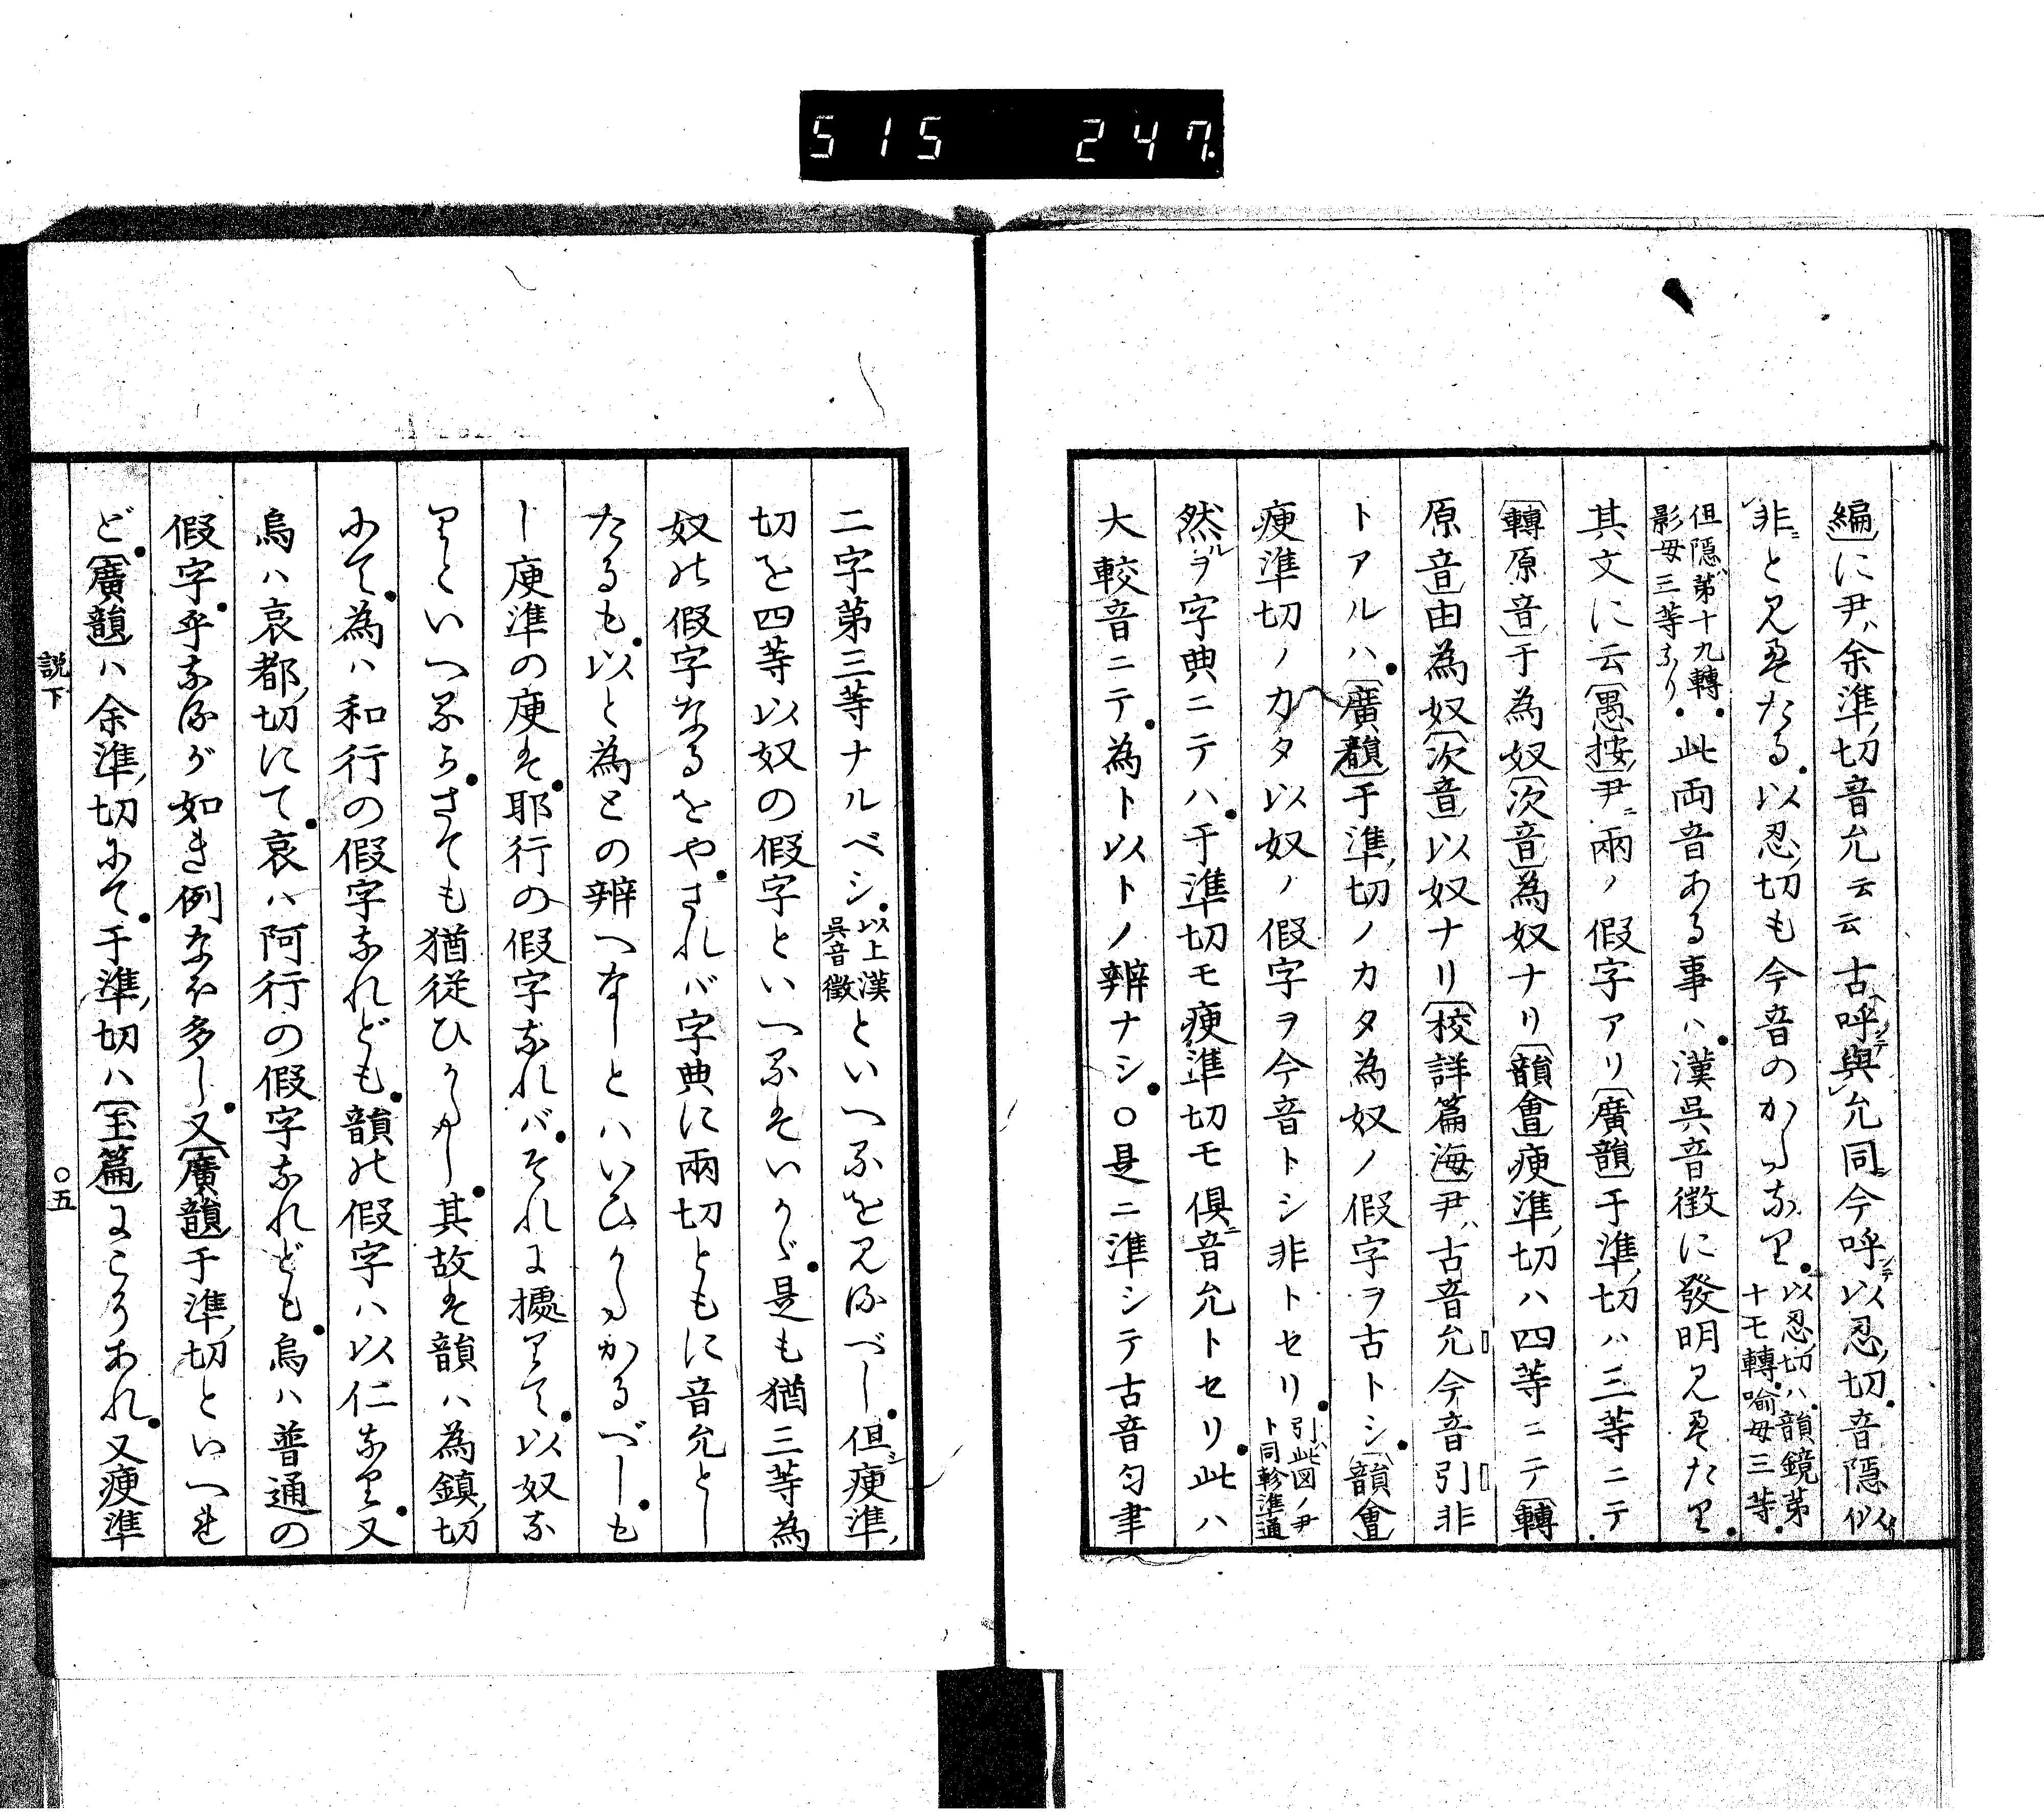 515 247
編に尹ハ余準切音允云云古呼テ與允同ニ今呼テ以忍切音隱似タリ
非ニと見えたる以忍切も今音のかたなり以忍切ハ韻鏡第
十七轉喻母三等
但隱ハ第十九轉
影母三等なり此両音ある事ハ漢呉音徴に發明見えたり
其文に云愚按尹ニ兩ノ假字アリ廣韻于準切ハ三等ニテ
轉原音于為奴次音為奴ナリ韻會庾準切ハ四等ニテ轉
原音由為奴次音以奴ナリ校詳篇海尹ハ古音允今音引非
トアルハ廣韻于準切ノカタ為奴ノ假字ヲ古トシ韻會
庾準切ノカタ以奴ノ假字ヲ今音トシ非トセリ引ハ此図ノ尹
ト同軫準通
然ルヲ字典ニテハ于準切モ庾準切モ倶ニ音允トセリ此ハ
大較音ニテ為ト以トノ辨ナシ○是ニ準シテ古音匀聿
二字第三等ナルベシ以上漢
呉音徴といへるを見るべし但シ庾準
切を四等以奴の假字といへるそいかゞ是も猶三等為
奴の假字なるをやされバ字典に兩切ともに音允とし
たるも以と為との辨へなしとハいひかたかるべしも
し庾準の庾を耶行の假字なれバそれに據りて以奴な
りといへるらさても猶従ひかたし其故を韻ハ為鎮切
にて為ハ和行の假字なれども韻の假字ハ以仁なり又
烏ハ哀都切にて哀ハ阿行の假字なれども烏ハ普通の
假字乎なるが如き例なほ多し又廣韻于準切といへれ
ど廣韻ハ余準切にて于準切ハ玉篇にこそあれ又庾準
説下 ○五